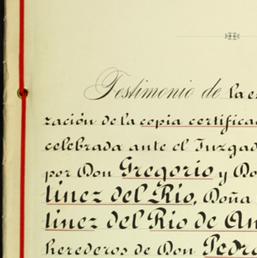 Testimonio de la es
zación de la copia certificad
celebrada ante el Juzgad
por Don Gregorio y Do
tínez del Río, Doña
tínez del Río de An
herederos de Don Pedro